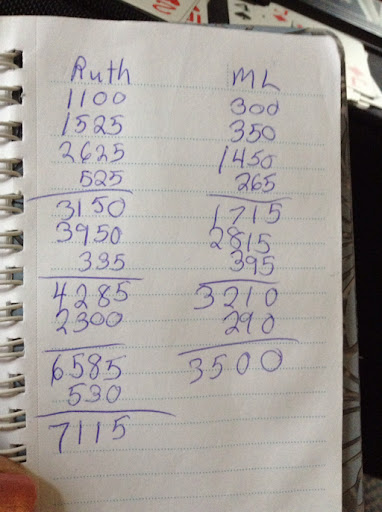 Ruth ML
1100 300
1525 350
2625 1450
525 265
3150 1715
3950 2815
335 395
4285 3210
2300 290
6585 3500
530
7115